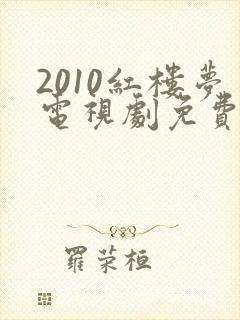 2010紅樓夢
電視劇免費
羅荣桓